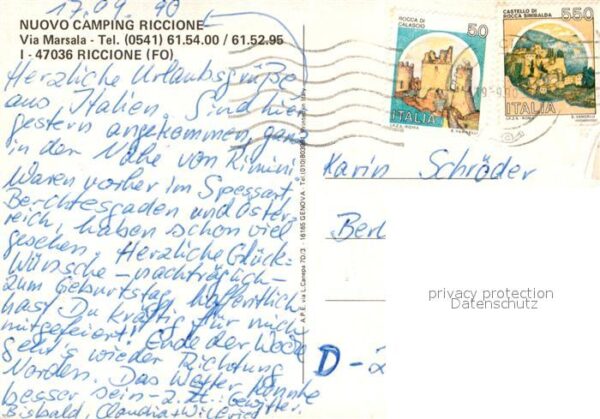 17.09.90
NUOVO CAMPING RICCIONE
Via Marsala - Tel. (0541) 61.54.00 / 61.52.95
I - 47036 RICCIONE (FO)
Herzliche Urlaubsgrüße
aus Italien. Sind hier
gestern angekommen, ganz
in der Nähe von Rimini
Waren vorher im Spessart
Berchtesgaden und Öster-
reich, haben schon viel
gesehen. Herzliche Glück-
wünsche - nachträglich -
zum Geburtstag, hoffentlich
hast Du kräftig für mich
mitgefeiert! Ende der Woche
geht's wieder Richtung
Norden. Das Wetter könnte
besser sein - z.Zt.: Gewitter.
Bisbald, Claudia + Wilfried
A.P.E. via L. Canepa 7D/3 - 16165 GENOVA - Tel. (010)
ROCCA DI
CALASCIO
50
ITALIA
I.P.Z.S. ROMA
CASTELLO DI
ROCCA SINIBALDA
550
ITALIA
Karin Schröder
Berl
privacy protection
Datenschutz
D-2